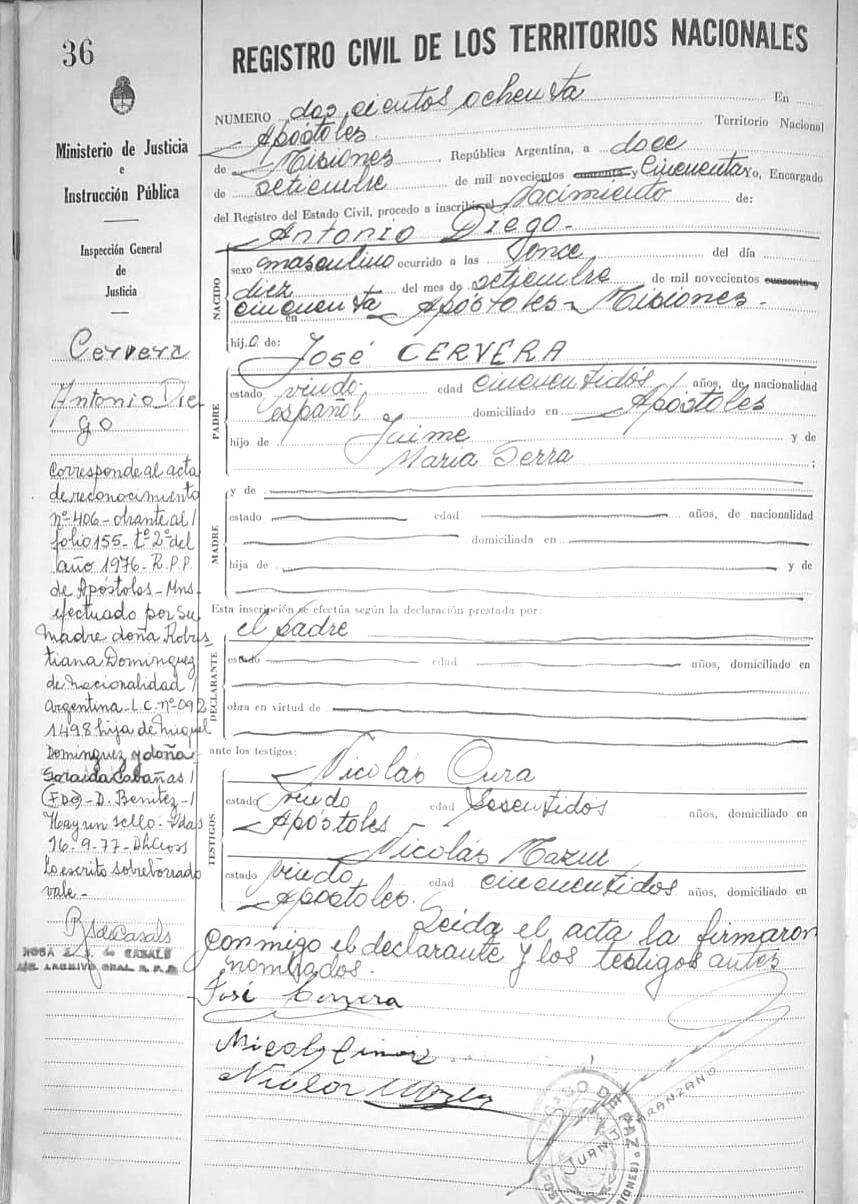 36
REGISTRO CIVIL DE LOS TERRITORIOS NACIONALES
Ministerio de Justicia
e
Instrucción Pública
Inspección General
de
Justicia
Cervera
Antonio Die
go
Corresponde al acta
de reconocimiento
nº 406 - obrante al /
folio 155 - tº 2º del
año 1976 - R.P.P.
de Apóstoles - Mns.
efectuado por su
madre doña Robus
tiana Dominguez
de nacionalidad /
argentina - L.C. nº 092
1498 hija de Miguel
Dominguez y doña
Soraida Cabañas /
(FDO) - D. Benitez - /
Hay un sello - Pdas
16-9-77 -
Lo escrito sobreborrado
vale -
ROSA E. S. de CASALS
ARCHIVO GRAL. R. P. P.
NUMERO dos cientos ochenta En
Apóstoles Territorio Nacional
de Misiones República Argentina, a doce
de setiembre de mil novecientos cuarenta y Cincuenta yo, Encargado
del Registro del Estado Civil, procedo a inscribir el Nacimiento de:
Antonio Diego.-
NACIDO
sexo masculino ocurrido a las once del día
diez del mes de setiembre de mil novecientos cuarenta y
cincuenta en Apóstoles - Misiones -
hijo de: José CERVERA
PADRE
estado viudo edad cincuentidós años, de nacionalidad
español domiciliado en Apóstoles
hijo de Jaime y de
María Serra ;
MADRE
y de
estado edad años, de nacionalidad
domiciliada en
hija de y de
Esta inscripción se efectúa según la declaración prestada por:
el padre
DECLARANTE
estado edad años, domiciliado en
obra en virtud de
ante los testigos:
TESTIGOS
Nicolás Cura
estado viudo edad sesentidós años, domiciliado en
Apóstoles -
Nicolás Mazur
estado viudo edad cincuentidós años, domiciliado en
Apóstoles.
Leída el acta la firmaron
conmigo el declarante y los testigos antes
nombrados.
José Cervera
JUAN J. ARANZANO